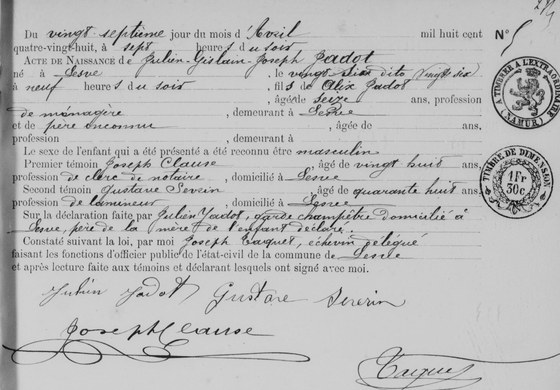 Du vingt septième jour du mois d'Avril mil huit cent
quatre-vingt-huit, à sept heures du soir
ACTE DE NAISSANCE de Julien-Gislain-Joseph Jadot
né à Lesve, le vingt six dito vingt six
à neuf heures du soir, fils de Alix Jadot
, âgée de seize ans, profession
de ménagère, demeurant à Lesve
et de père inconnu, âgée de ans,
profession de, demeurant à
Le sexe de l'enfant qui a été présenté a été reconnu être masculin
Premier témoin Joseph Clause, âgé de vingt huit ans,
profession de clerc de notaire, domicilié à Lesve
Second témoin Gustave Severin, âgé de quarante huit ans,
profession de lamineur, domicilié à Lesve
Sur la déclaration faite par Julien Jadot, garde champêtre domicilié à
Lesve, père de la mère de l'enfant déclaré.
Constaté suivant la loi, par moi Joseph Taquet, échevin délégué
faisant les fonctions d'officier public de l'état-civil de la commune de Lesve
et après lecture faite aux témoins et déclarant lesquels ont signé avec moi.
Julien Jadot Gustave Severin
Joseph Clause
Taquet
N° 5
A TIMBRER A L'EXTRAORDINAIRE
(NAMUR)
TIMBRE DE DIMENSION
1 Fr
30c